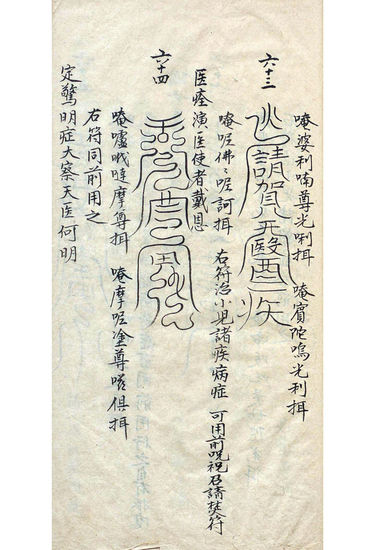 六十三
唵婆利喃尊光唎揖 唵賓陀嗚光利揖
請賀
唵呢佛々呢訶揖 右符治小兒諸疾病症 可用前呪祝乃請焚符
医痊演医使者戴恩
六十四
唵嚧哦哇摩尊揖 唵摩呢塗尊嗟俱揖
右符同前用之
定驚明症大察天医何明